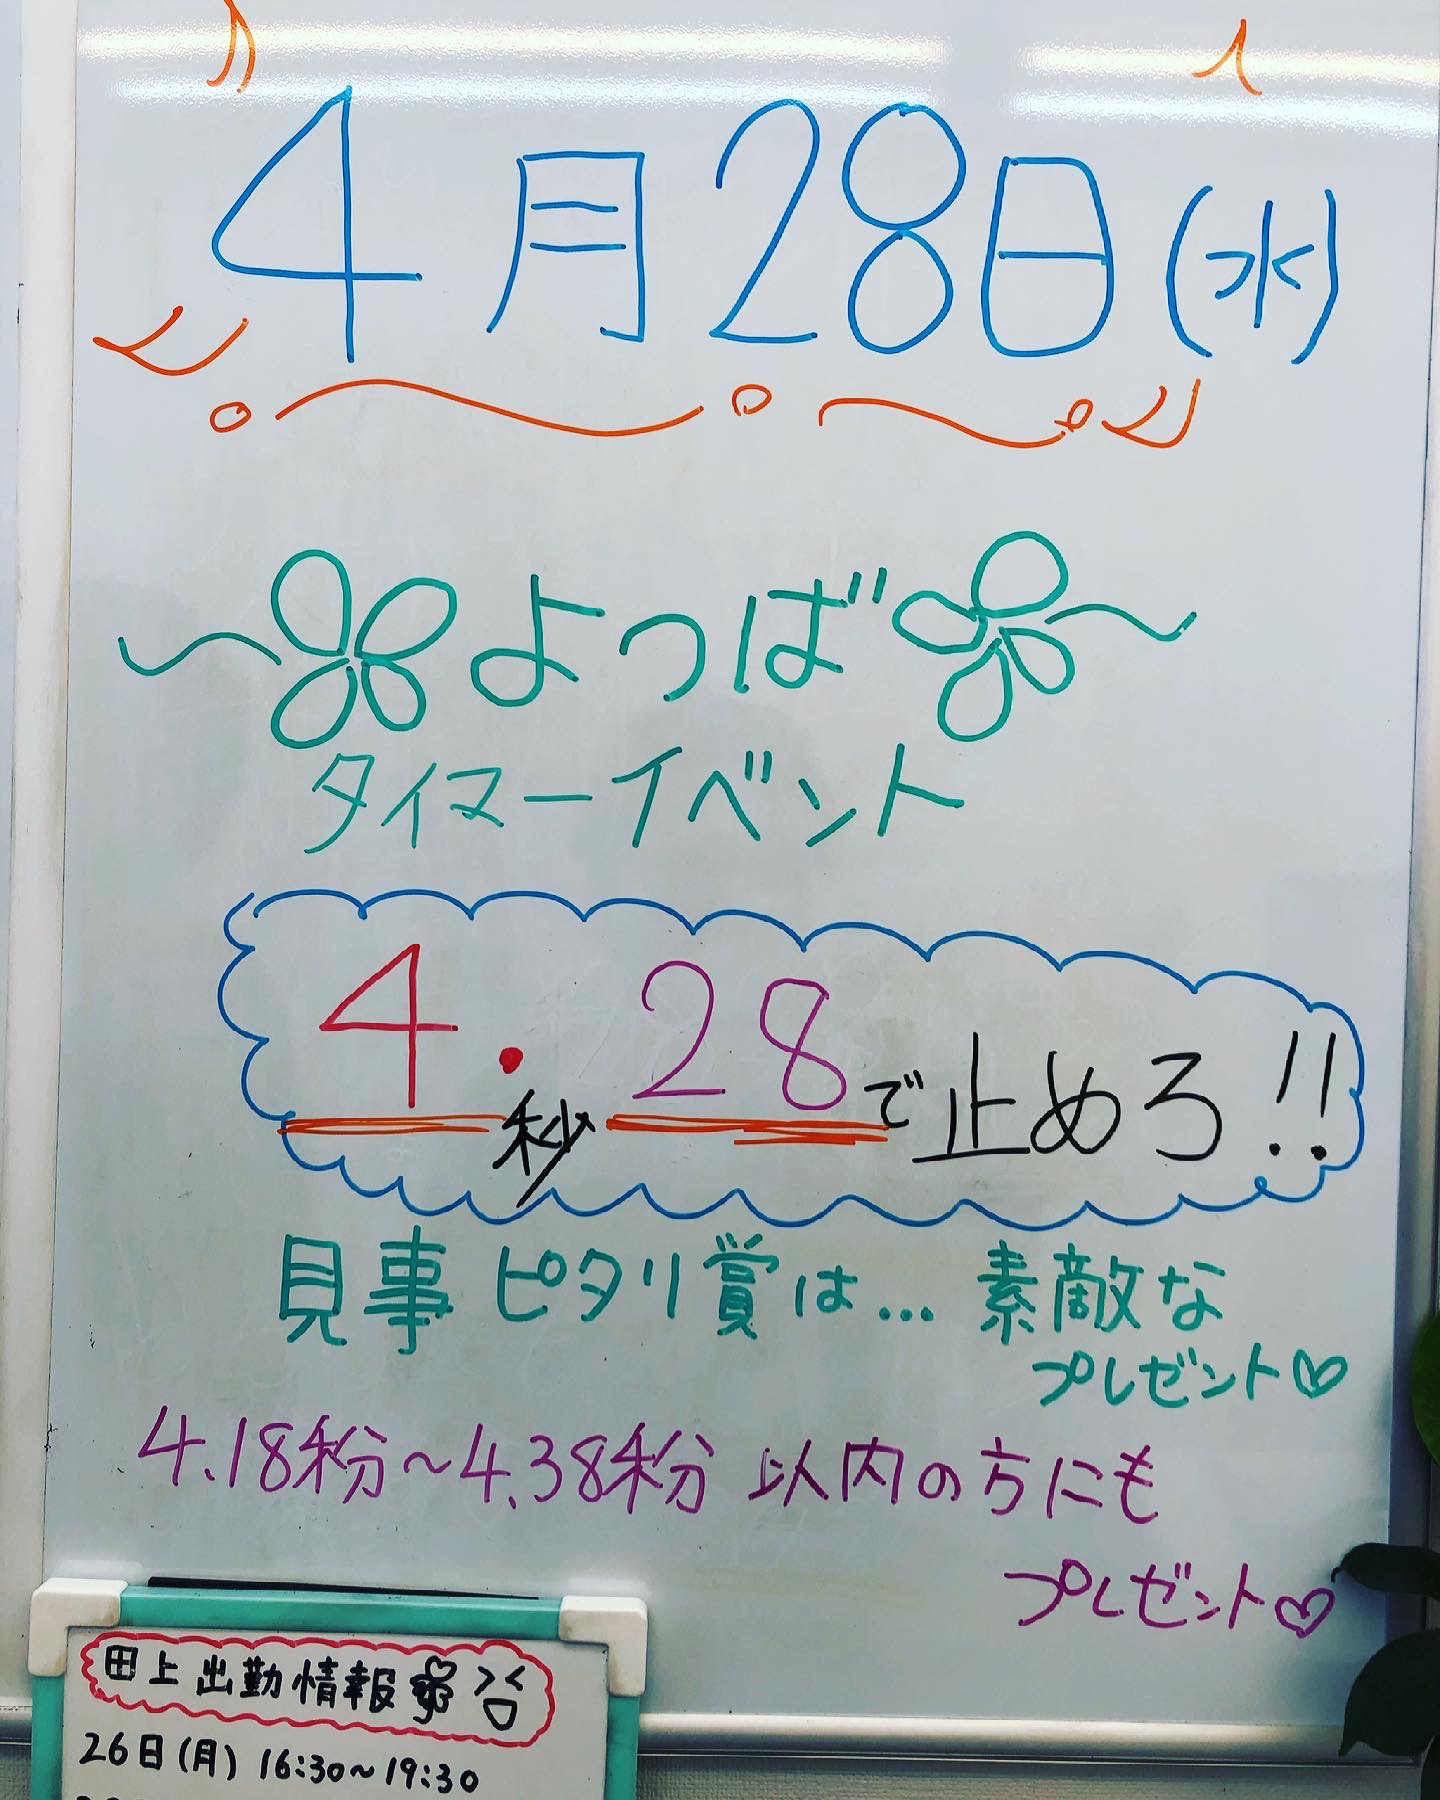 4月28日(水)
よつば
タイマーイベント
4.28で止めろ!!
秒
見事ピタリ賞は...素敵な
プレゼント♡
4.18秒〜4.38秒 以内の方にも
プレゼント♡
田上出勤情報
26日(月) 16:30~19:30